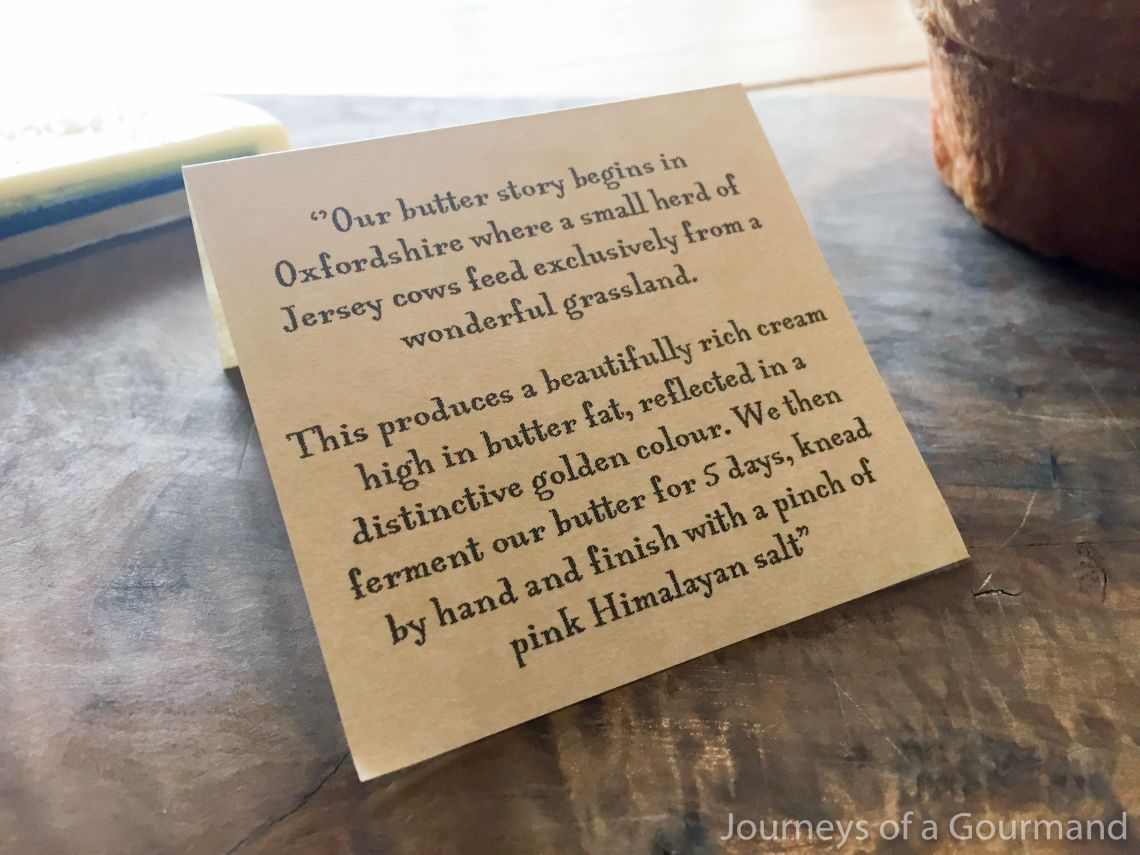 “Our butter story begins in
Oxfordshire where a small herd of
Jersey cows feed exclusively from a
wonderful grassland.
This produces a beautifully rich cream
high in butter fat, reflected in a
distinctive golden colour. We then
ferment our butter for 5 days, knead
by hand and finish with a pinch of
pink Himalayan salt”
Journeys of a Gourmand